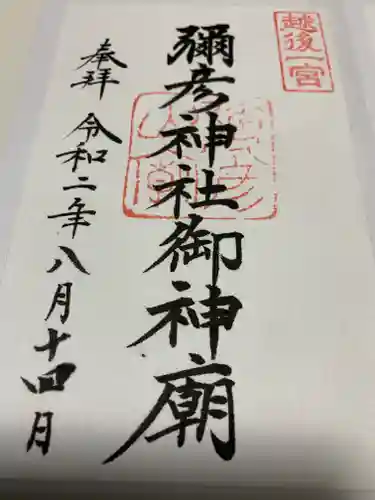 越後一宮
彌彦神社御神廟
奉拝 令和二年八月十四月